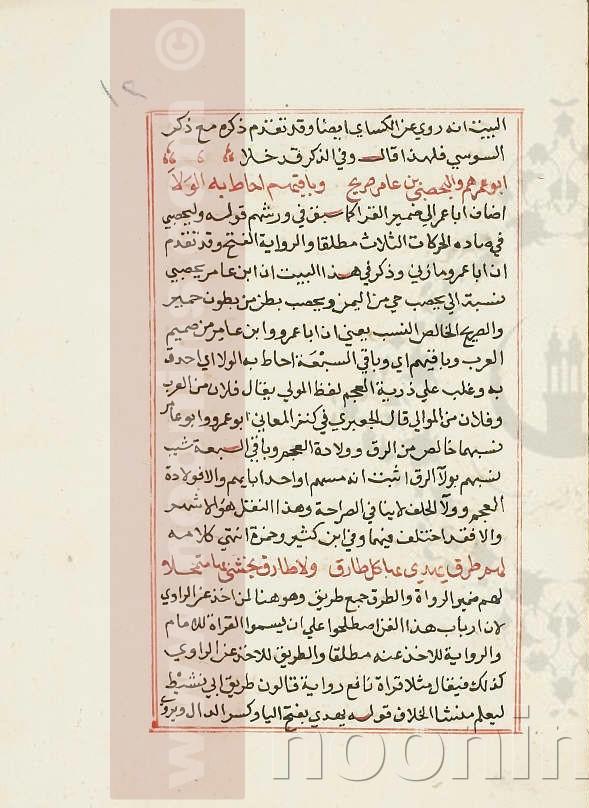 البيت انه روي عن الكسائي ايضا وقد تقدم ذكره مع ذكر
السوسي فلهذا قال وفي الذكر قد خلا
ابو عمرهم واليحصبي بن عامر صريح وباقيهم احاط به الولا
اضاف ابا عمر الي ضمير القرا كما سبق في ورشهم قوله واليحصبي
في صاده الحركات الثلاث مطلقا والرواية الفتح وقد تقدم
ان ابا عمرو مازني وذكر في هذا البيت ان ابن عامر يحصبي
نسبة الي يحصب حي من اليمن ويحصب بطن من بطون حمير
والصريح الخالص النسب يعني ان ابا عمرو وابن عامر من صميم
العرب وباقيهم اي وباقي السبعة احاط به الولا اي احدق
به وغلب علي ذرية العجم لفظ الموالي يقال فلان من العرب
وفلان من الموالي قال الجعبري في كنز المعاني ابو عمرو وابو عامر
نسبهما خالص من الرق وولادة العجم وباقي السبعة شيب
نسبهم بولا الرق اثبت انه مسهم او احد ابايهم والا فولادة
العجم وولا الحلف لا ينافي الصراحة وهذا النقل هو الاشهر
والا فقد اختلف فيهما وفي ابن كثير وحمزة انتهي كلامه
لهم طرق يهدي بها كل طارق ولا طارق يخشي بها متمحلا
لهم ضمير الرواة والطرق جمع طريق وهو هنا لمن اخذ عن الراوي
لان ارباب هذا الفن اصطلحوا علي ان يسموا القراة للامام
والرواية للاخذ عنه مطلقا والطريق للاخذ عن الراوي
كذلك فيقال مثلا قراة نافع رواية قالون طريق ابي نشيط
ليعلم منشا الخلاف قوله يهدي بفتح اليا وكسر الدال ويروي
noonin